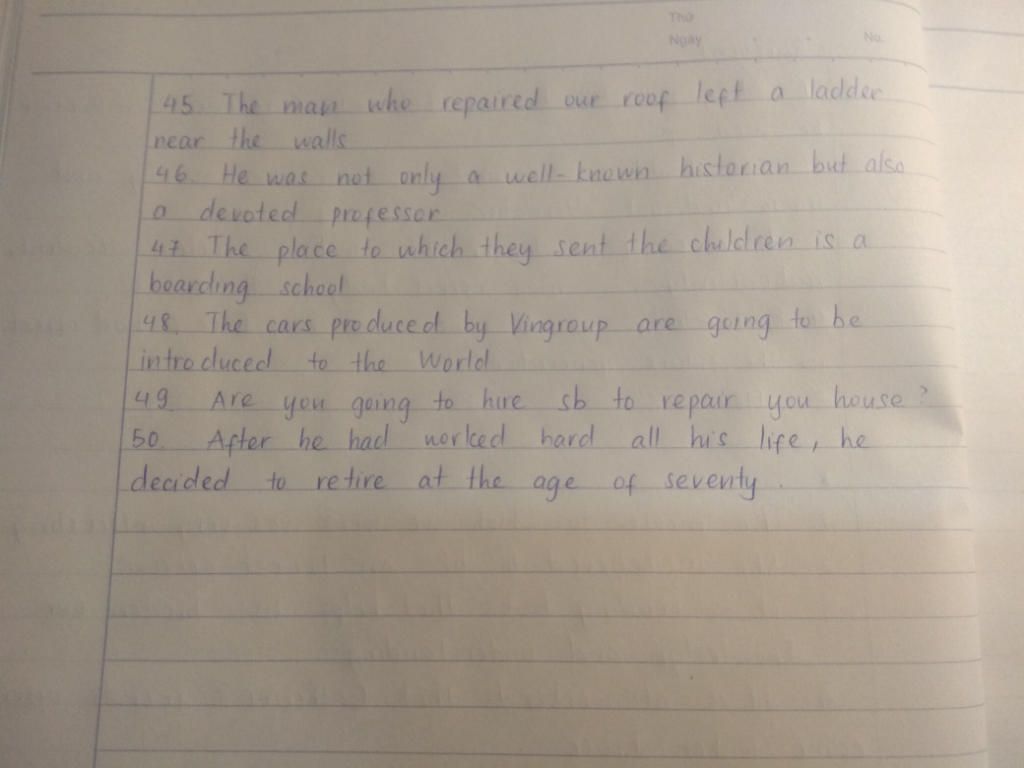 Thứ
Ngày
No.
45. The man who repaired our roof left a ladder
near the walls
46. He was not only a well-known historian but also
a devoted professor
47. The place to which they sent the children is a
boarding school
48. The cars produced by Vingroup are going to be
introduced to the World
49. Are you going to hire sb to repair you house?
50. After he had worked hard all his life, he
decided to retire at the age of seventy.